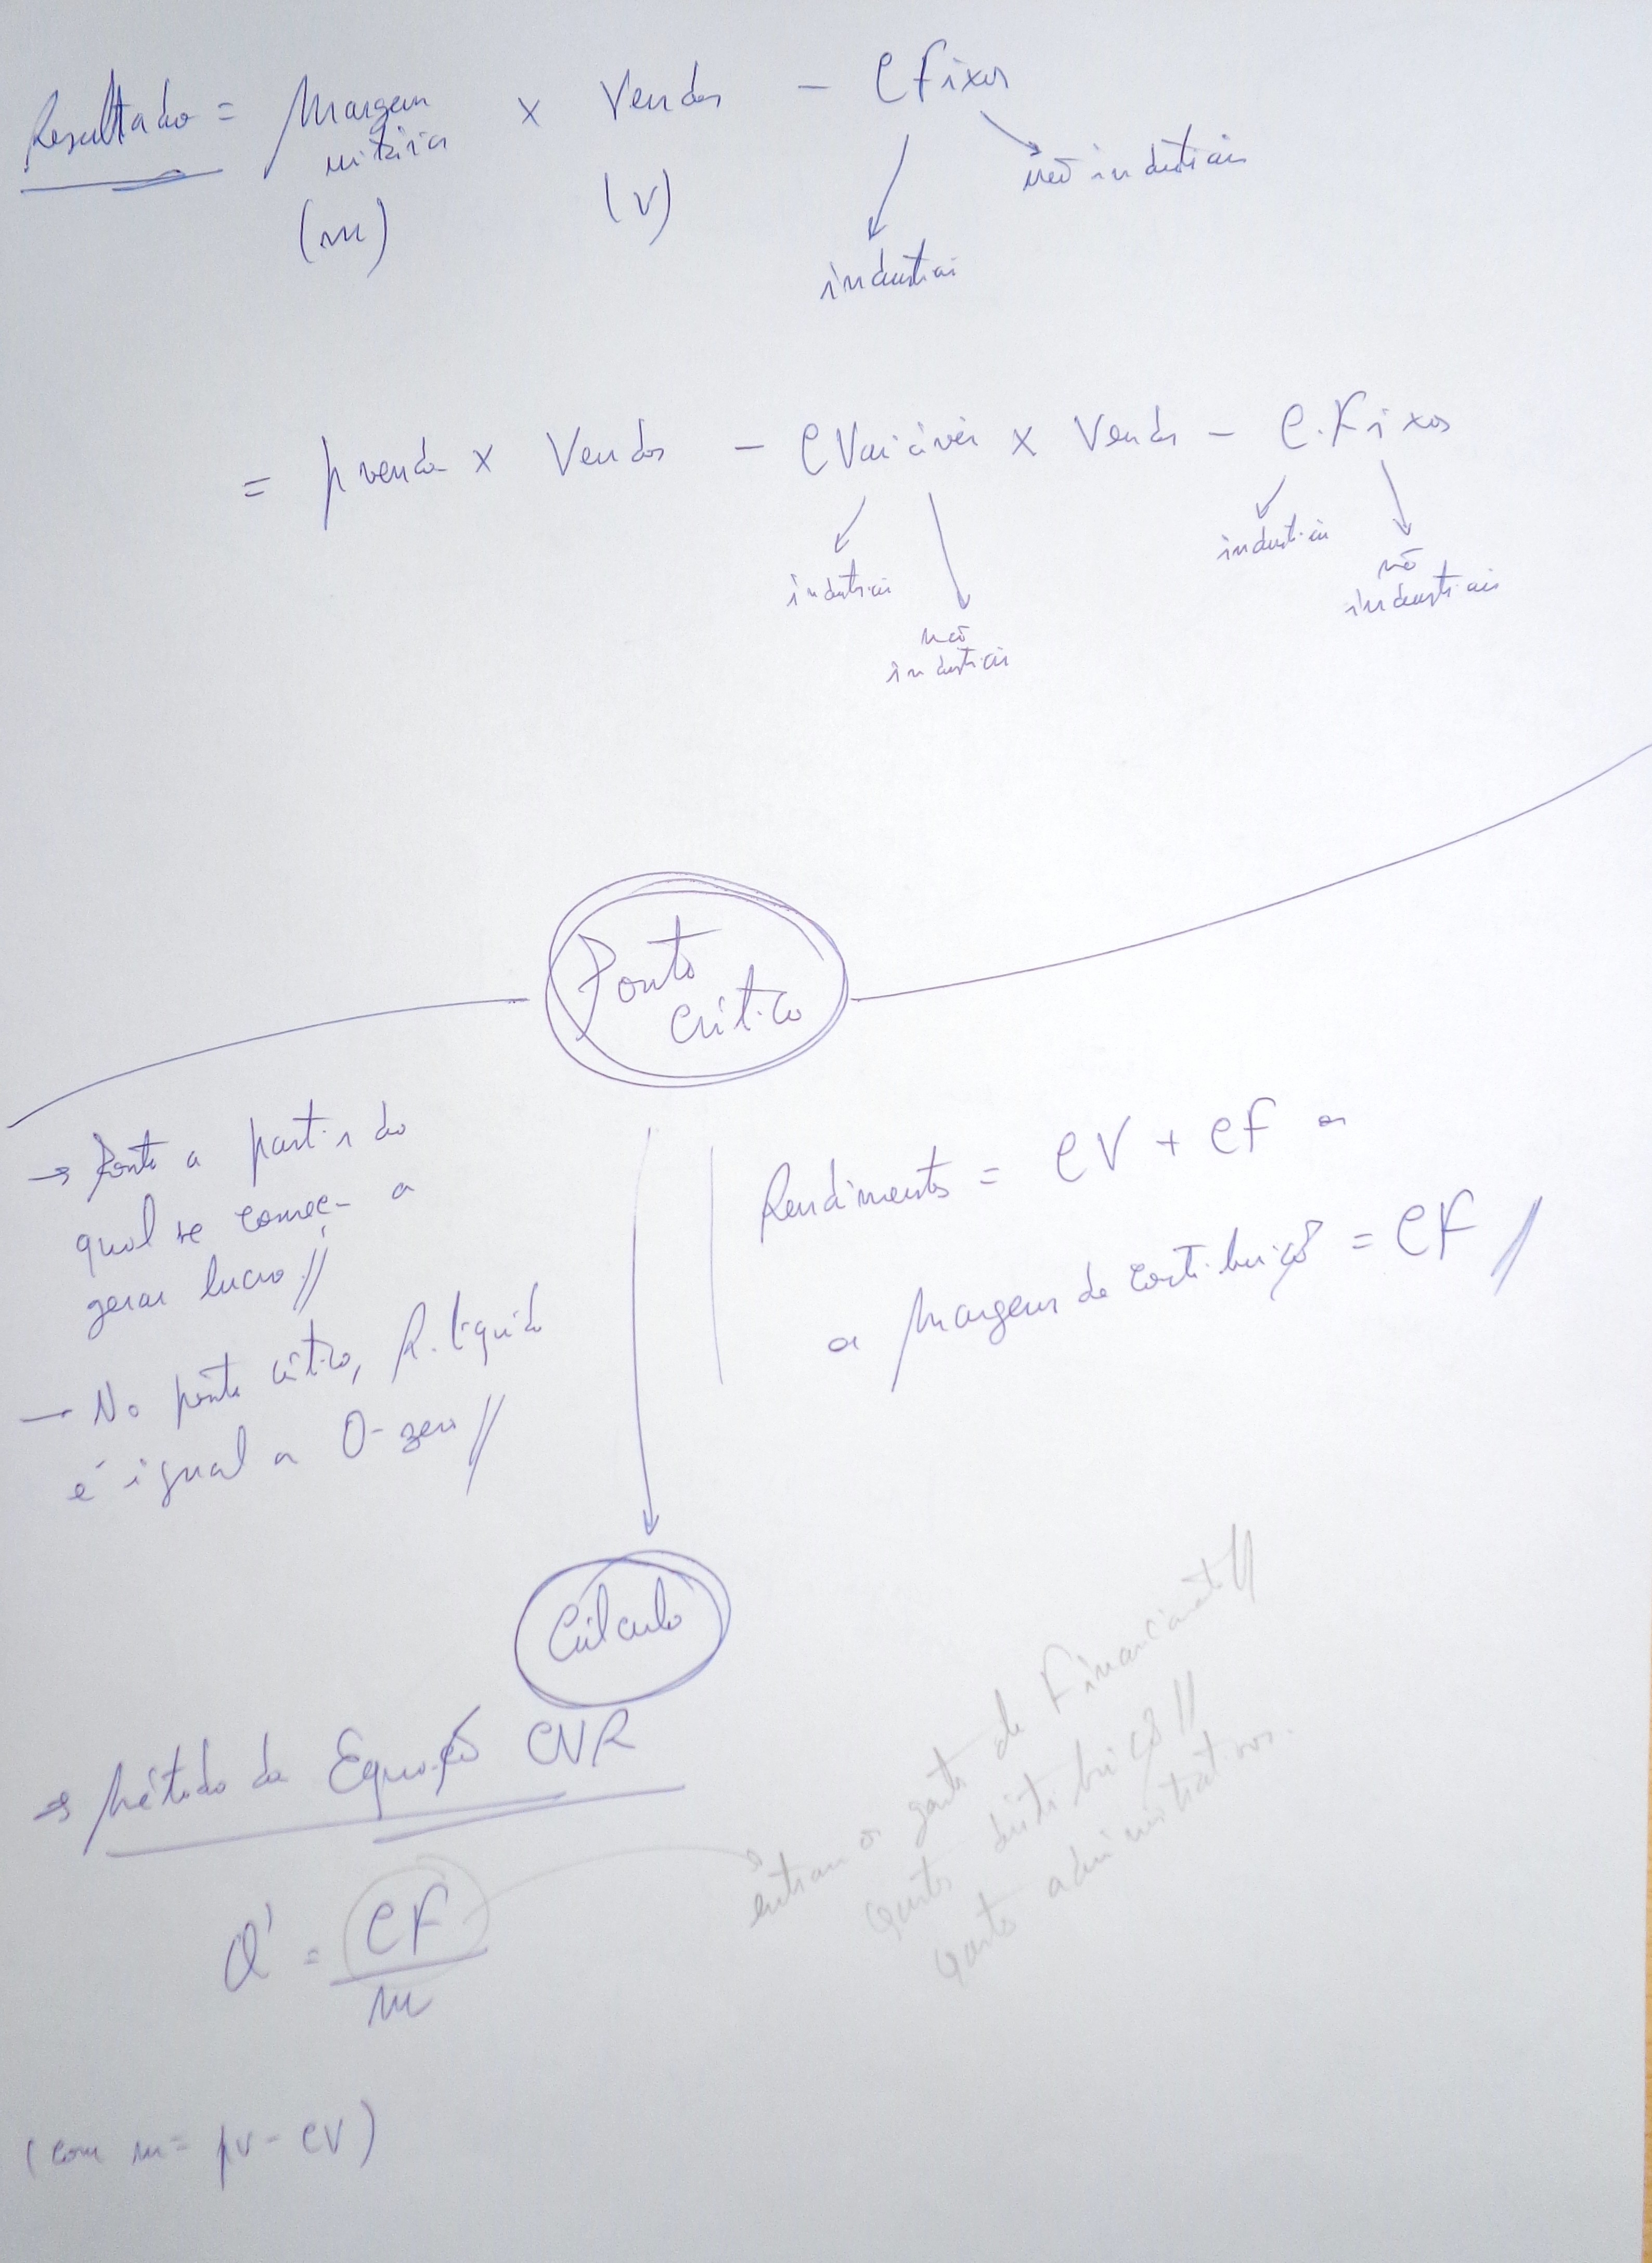 Resultado = Margem unitária × Vendas - CFixos
(m) (V)
não industriais
industriais
= p venda × Vendas - CVariáveis × Vendas - C.Fixos
industriais
não
industriais
industriais
não
industriais
Ponto
Crítico
→ Ponto a partir do
qual se começa a
gerar lucro //
→ No ponto crítico, R. líquido
é igual a 0-zero //
Rendimentos = CV + CF
a Margem de contribuição = CF //
Cálculo
→ Método da Equação CVR
Q' = CF
m
entram os gastos de Financiamento //
Gastos distribuição //
Gastos administrativos.
(com m = pv - CV)